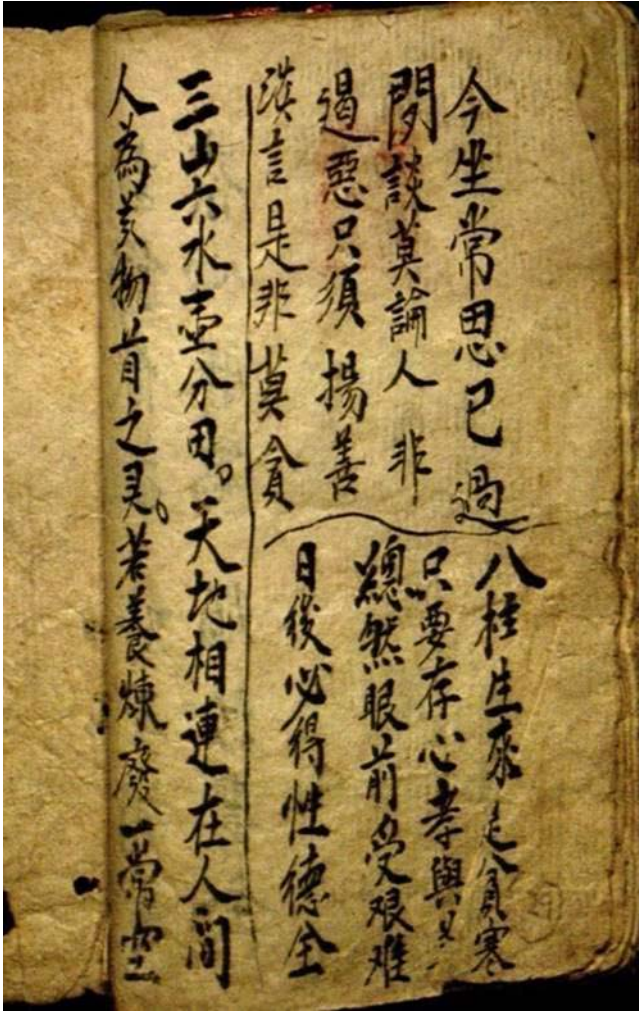 今坐常思已過
閒談莫論人非
遏惡只須揚善
言是非莫貪
八桂生來是貧寒
只要存心孝與
總然眼前受艰难
日後必得性德全
三山六水壹分田。天地相連在人间
人為万物首之灵。若養煉廢一嘗空